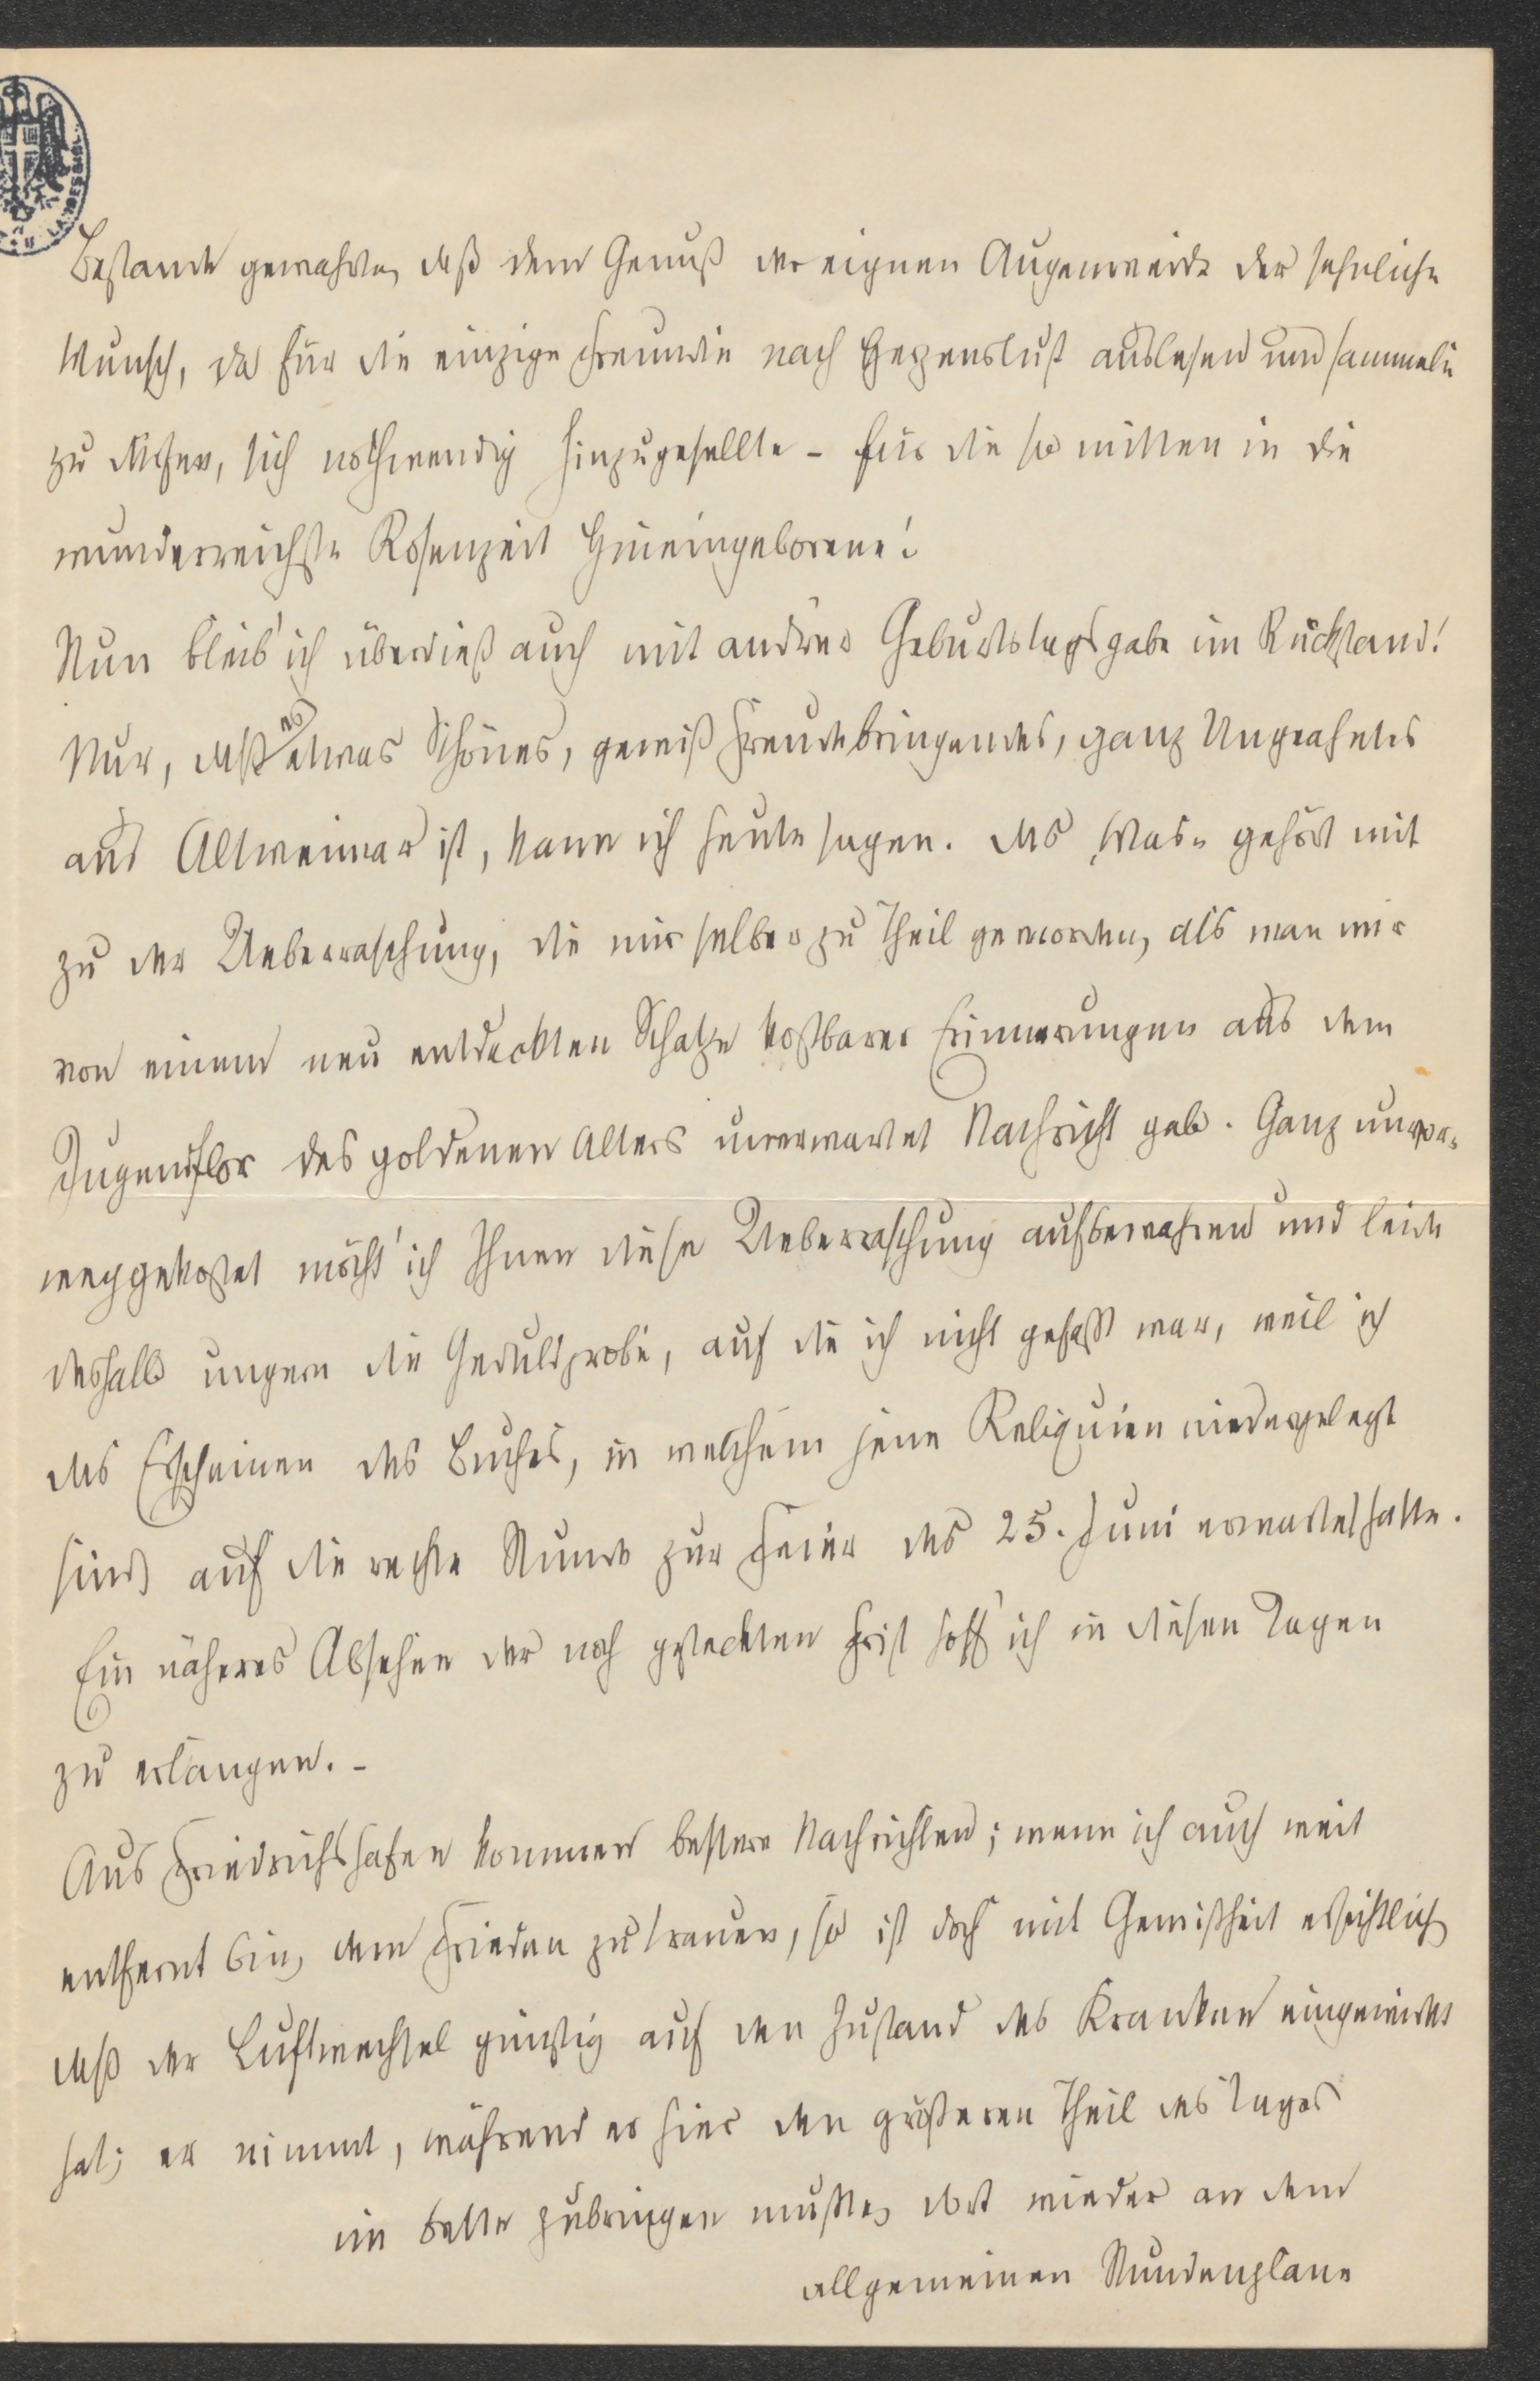 Bestande gewahrte, daß dem Genuß der eignen Augenweide der sehnliche
Wunsch, da für die einzige Freundin nach Herzenslust auslesen und sammeln
zu dürfen, sich nothwendig hinzugesellte – für die so mitten in die
wunderreichste Rosenzeit Hineingeborene!
Nun bleib' ich überdieß auch mit andrer Geburtstagsgabe im Rückstand!
Nur, daß es etwas Schönes, gewiß Freudebringendes, ganz Ungeahntes
aus Altweimar ist, kann ich heute sagen. Das „Was" gehört mit
zu der Ueberraschung, die mir selber zu Theil geworden, als man mir
von einem neu entdeckten Schatze kostbarer Erinnerungen aus dem
Jugendflor des goldenen Alters unerwartet Nachricht gab. Ganz unvor-
weggekostet möcht' ich Ihnen diese Ueberraschung aufbewahren und leide
deshalb ungern die Geduldprobe, auf die ich nicht gefaßt war, weil ich
das Erscheinen des Buches, in welchem jene Reliquien niedergelegt
sind, auf die rechte Stunde zur Feier des 25. Juni erwartet hatte.
Ein näheres Absehen der noch gesteckten Frist hoff' ich in diesen Tagen
zu erlangen. –
Aus Friedrichshafen kommen bessere Nachrichten; wenn ich auch weit
entfernt bin, dem Frieden zu trauen, so ist doch mit Gewißheit ersichtlich
daß der Luftwechsel günstig auf den Zustand des Kranken eingewirkt
hat; er nimmt, während er hier den größeren Theil des Tages
im Bette zubringen mußte, dort wieder an dem
allgemeinen Stundenplane